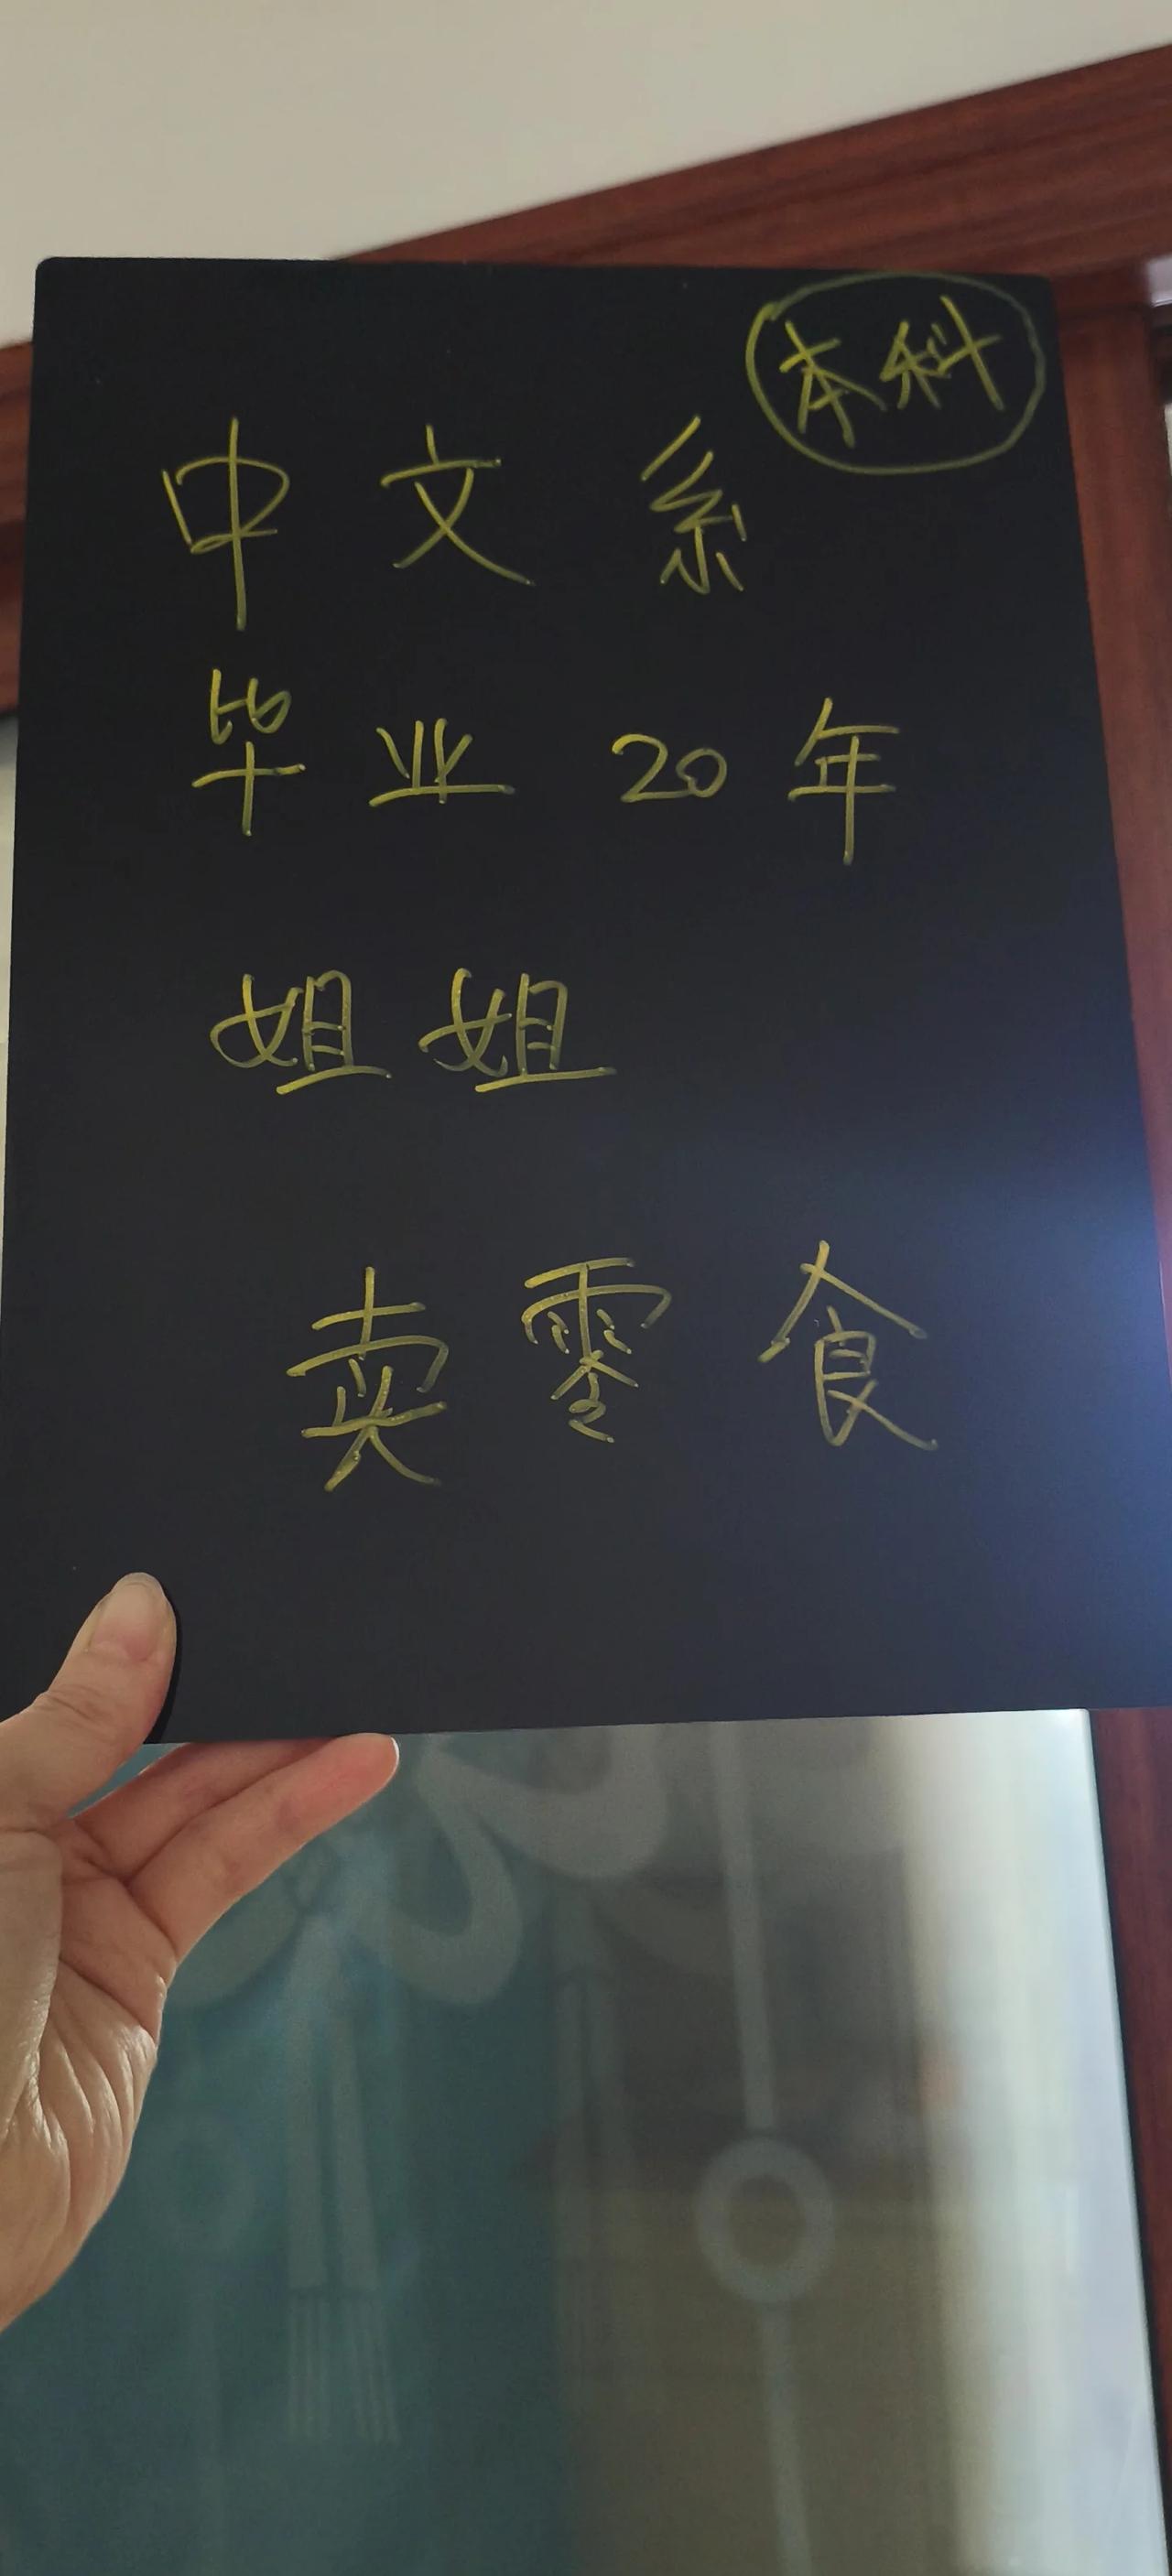 本科
中文系
毕业20年
姐姐
卖零食